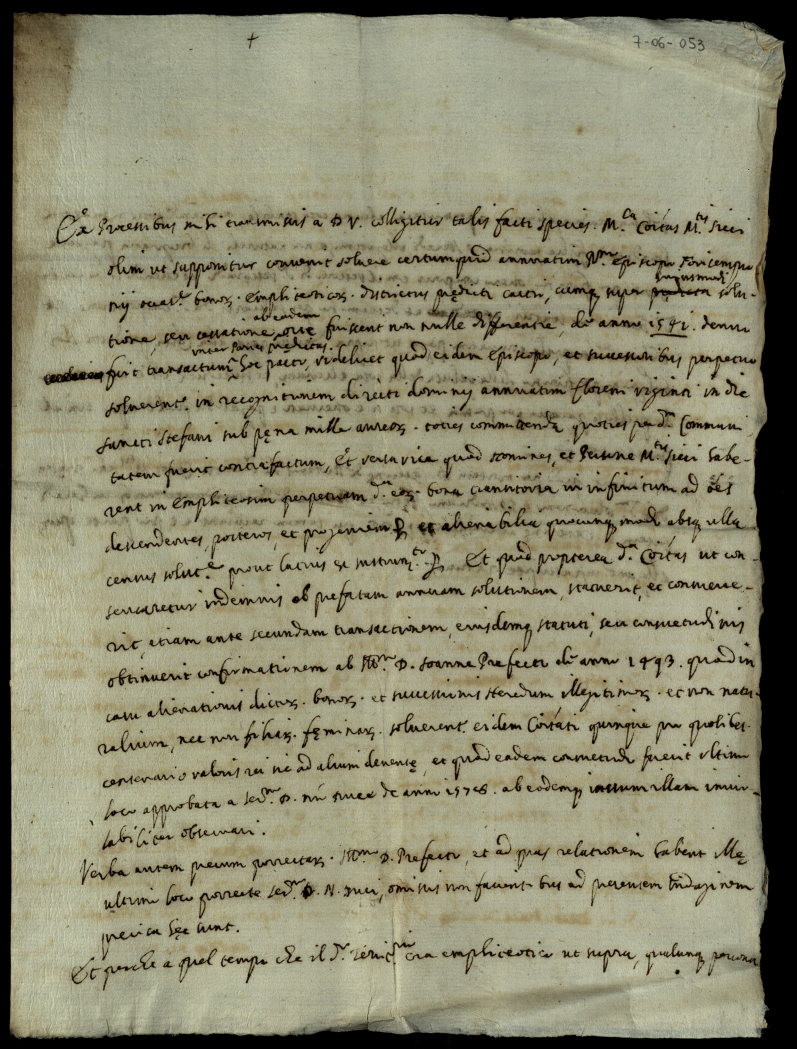 +
7-06-053
Ex Processibus mihi transmissis a D. V. colligitur talis facti species. M.ca Coītas M.tis
olim ut supponitur convenit solvere certum quid annuatim Episcopo
nij bonor. emphiteoticor. districtus prędicti castri, cumq. super huiusmodi solu-
tione, seu cessatione ab eadem fuissent non nulle differentie, de anno 1541. demum
fuit transactum inter partes prędictas hoc pacto, videlicet quod eidem Episcopo, et successoribus perpetuo
solverent.r in recognitionem directi dominij annuatim floreni viginti in die
sancti Stefani sub pęna mille aureor. toties committenda quoties per d.m Communi
tatem fuerit contrafactum, Et versa vice quod homines, et Persone M.tis habe-
rent in emphiteosim perpetuam d.ta bona transitoria in infinitum ad
descendentes, posteros, et et alienabilia quocunq. modo absq. ulla
census solut.e prout latius ex instrum.to Et quod propterea d.ta Coītas ut con-
servaretur indemnis ob prefatam annuam solutionem, statuerit, et convene-
rit, etiam ante secundam transactionem, eiusdemq. statuti, seu consuetudinis
obtinuerit confirmationem ab Ill.mo D. Joanne Prefecto de anno 1493. quod in
casu alienationis dictor. bonor. et successionis heredum illegitimor. et non natu-
ralium, nec non filiar. fęminar. solverent.r eidem Coītati quinque pro quolibet
centenario valoris rei sic ad alium devente, et quod eadem consuetudo fuerit ultimo
loco approbata a Ser.mo D. de anno 1578. ab eodemq. iussum illam invio-
labiliter observari.
Verba autem precum porrectar. Ill.mo D. Prefecto, et ad quas relationem habent illę
ultimo loco porrecte Ser.mo D. N. Duci, omissis non facientibus ad presentem indaginem
precisa hęc sunt.
Et perche a quel tempo che il d.o era emphiteotico ut supra, qualunq. persona